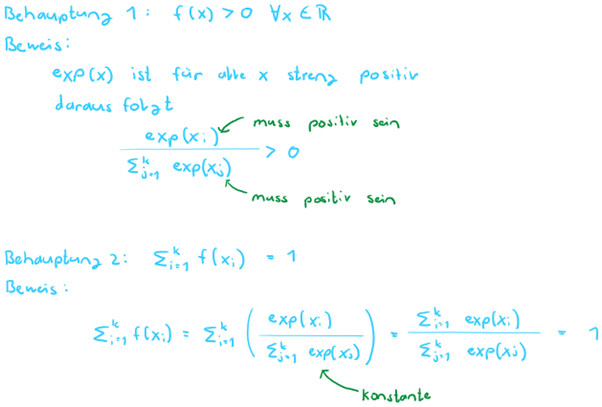 Behauptung 1: f(x) > 0 ∀x ∈ ℝ
Beweis:
exp(x) ist für alle x streng positiv
daraus folgt
exp(xᵢ) / Σⱼ₌₁ᵏ exp(xⱼ) > 0
muss positiv sein
muss positiv sein
Behauptung 2: Σᵢ₌₁ᵏ f(xᵢ) = 1
Beweis:
Σᵢ₌₁ᵏ f(xᵢ) = Σᵢ₌₁ᵏ ( exp(xᵢ) / Σⱼ₌₁ᵏ exp(xⱼ) ) = Σᵢ₌₁ᵏ exp(xᵢ) / Σⱼ₌₁ᵏ exp(xⱼ) = 1
Konstante